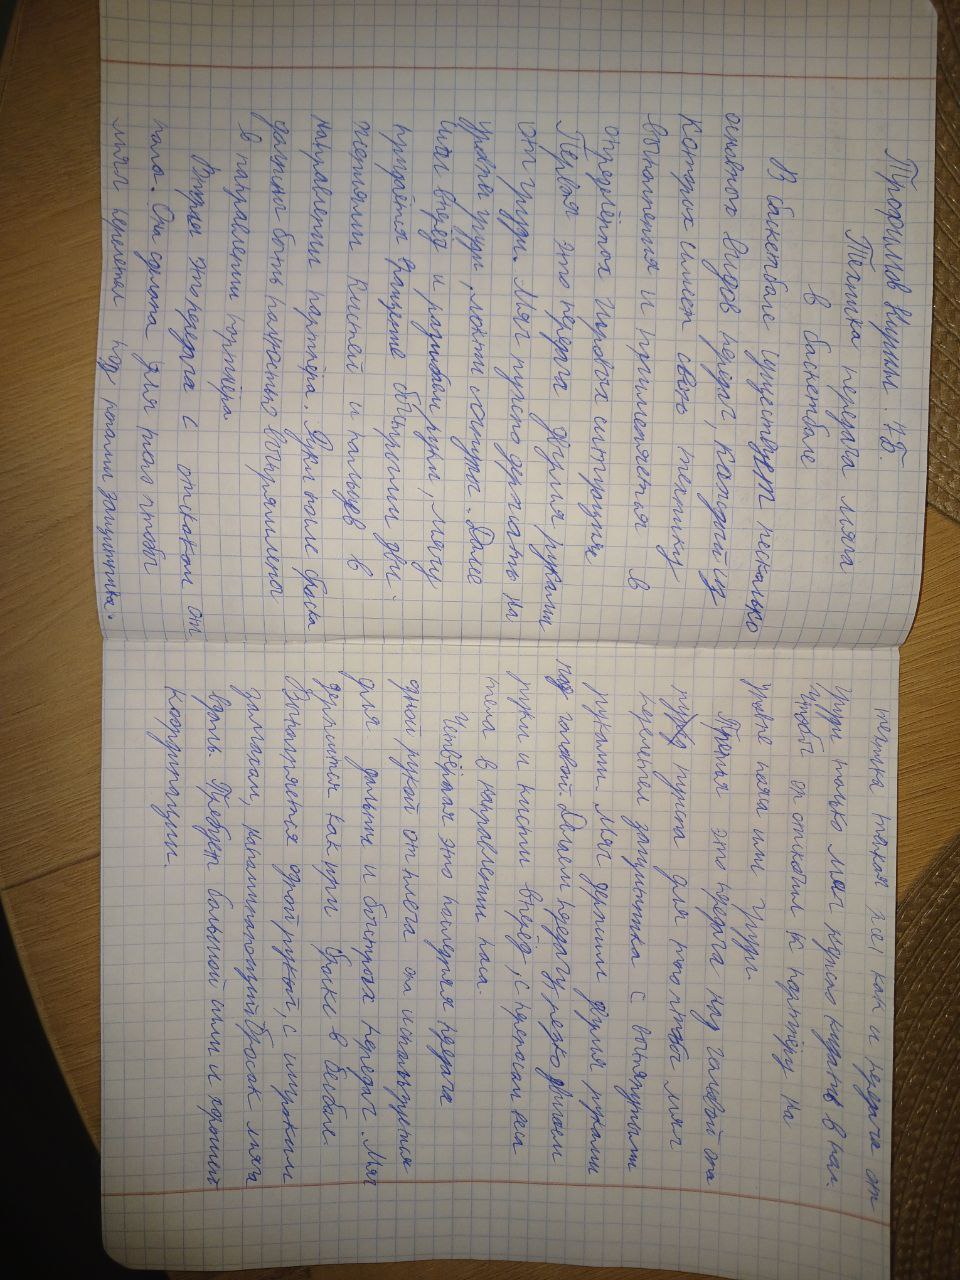 Трофимов Кирилл. 7Б.
Техника передач мяча
в баскетболе
В баскетболе существует несколько
основных видов передач, каждый из
которых имеет свою технику
выполнения и применяется в
определённых игровых ситуациях
Первая это передача двумя руками
от груди. Мяч нужно держать на
уровне груди, локти согнуты. Далее
шаг вперед и разгибаем руки, мячу
придаётся вращение обычными дви-
жениями кистей и пальцев в
направлении партнёра. Руки после броска
должны быть полностью выпрямлены
в направлении партнёра
Вторая это передача с отскоком от
пола. Она сделана для того чтобы
мяч пролетел под руками защитника.
техника такая же, как и передача от
груди только мяч нужно кидать в пол.
чтобы он отскочил к партнёру на
уровне пояса или груди.
Третья это передача над головой она
нужна для того чтобы мяч
пролетел защитника с вытянутыми
руками Мяч держим двумя руками
над головой Делаем передачу резко двигаем
руки и кисти вперёд, с переносом веса
тела в направлении паса.
Четвёртая это последняя передача
одной рукой от плеча она используется
для дальних и быстрых передач. Мяч
держится как при броске в бейсболе
Выполняется одной рукой, с широким
замахом, бросок мяча
вдаль. Требует большой силы и хорошей
координации.